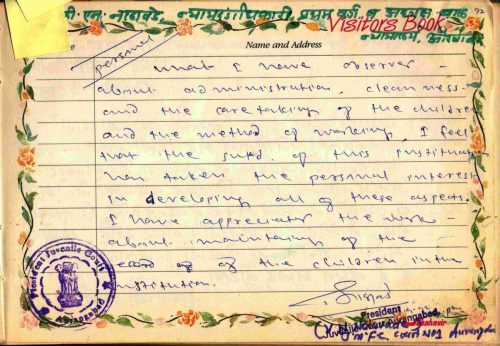 सी. एल. नारवाडे, न्यायदंडाधिकारी, प्रथम वर्ग व अध्यक्ष बाल
न्यायालय, औरंगाबाद
92
Visitors Book
Name and Address
personal
What I have observer -
about administration, cleanness -
and the care taking of the children
and the method of working. I feel
that the supd. of this institution
has taken the personal interest
in developing all of these aspects.
I have appreciates the work -
about maintaing of the
record of of the children in the
institution.
President
Juvenile Court, Aurangabad.
J.M.F.C. Court No 1 Aurangabad
President Juvenile Court
Aurangabad